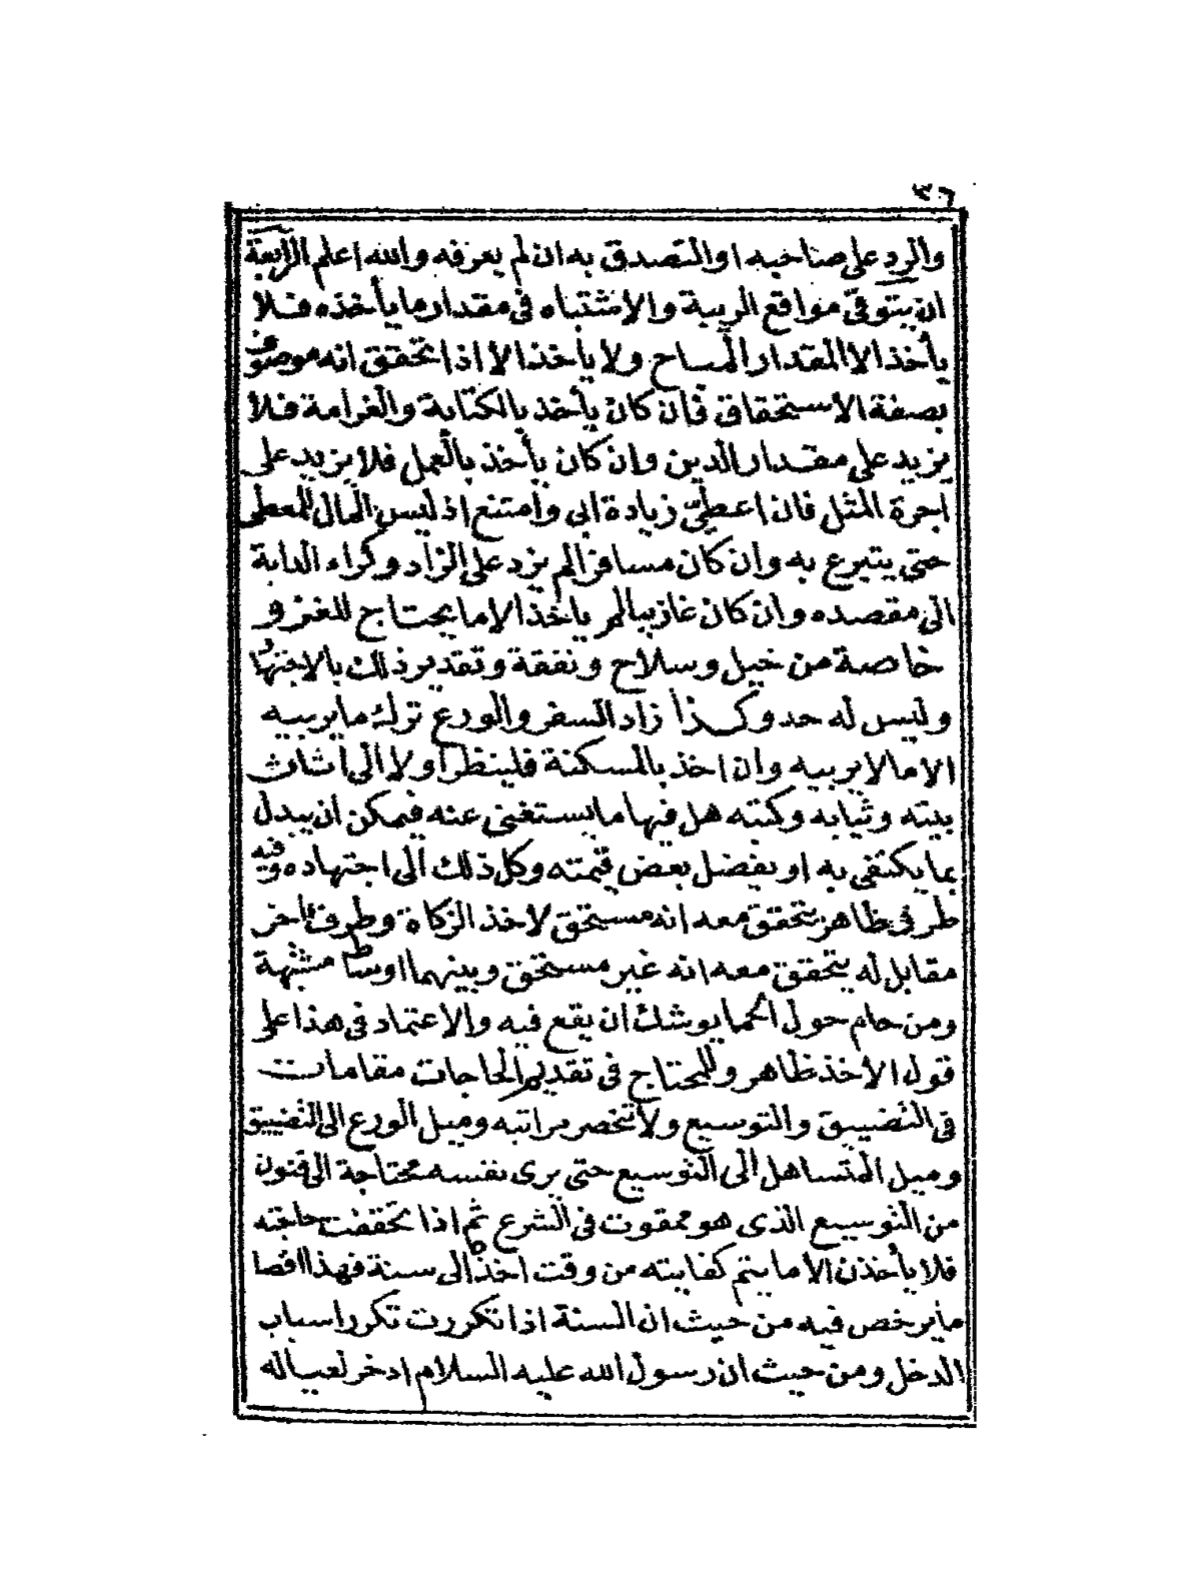 ٣٦
والرد على صاحبه او التصدق به ان لم يعرفه والله اعلم الرابعة
ان يتوقى مواقع الريبة والاشتباه فى مقدار ما يأخذه فلا
يأخذ الا المقدار المباح ولا يأخذ الا اذا تحقق انه موصوف
بصفة الاستحقاق فان كان يأخذ بالكتابة والغرامة فلا
يزيد على مقدار الدين وان كان يأخذ بالعمل فلا يزيد على
اجرة المثل فان اعطى زيادة ابى وامتنع اذ ليس المال للمعطى
حتى يتبرع به وان كان مسافرا لم يزد على الزاد وكراء الدابة
الى مقصده وان كان غازيا لم ياخذ الا ما يحتاج للغزو
خاصة من خيل وسلاح ونفقة وتقدير ذلك بالاجتهاد
وليس له حد وكذا زاد السفر والورع ترك ما يريبه
الا ما لا يريبه وان اخذ بالمسكنة فلينظر اولا الى اثاث
بيته وثيابه وكتبه هل فيها ما يستغنى عنه فيمكن ان يبدل
بما يكتفى به او يفضل بعض قيمته وكل ذلك الى اجتهاده وفيه
طرفى ظاهر يتحقق معه انه مستحق لاخذ الزكاة وطرف اخر
مقابل له يتحقق معه انه غير مستحق وبينهما اوساط مشتبهة
ومن حام حول الحما يوشك ان يقع فيه والاعتماد فى هذا على
قول الاخذ ظاهر وللمحتاج فى تقدير الحاجات مقامات
فى التضييق والتوسيع ولا تنحصر مراتبه وميل الورع الى التضييق
وميل المتساهل الى التوسيع حتى يرى نفسه محتاجة الى فنون
من التوسيع الذى هو ممقوت فى الشرع ثم اذا تحققت حاجته
فلا يأخذن الا ما يتم كفايته من وقت اخذه الى سنة فهذا اقصا
ما يرخص فيه من حيث ان السنة اذا تكررت تكرر اسباب
الدخل ومن حيث ان رسول الله عليه السلام ادخر لعياله